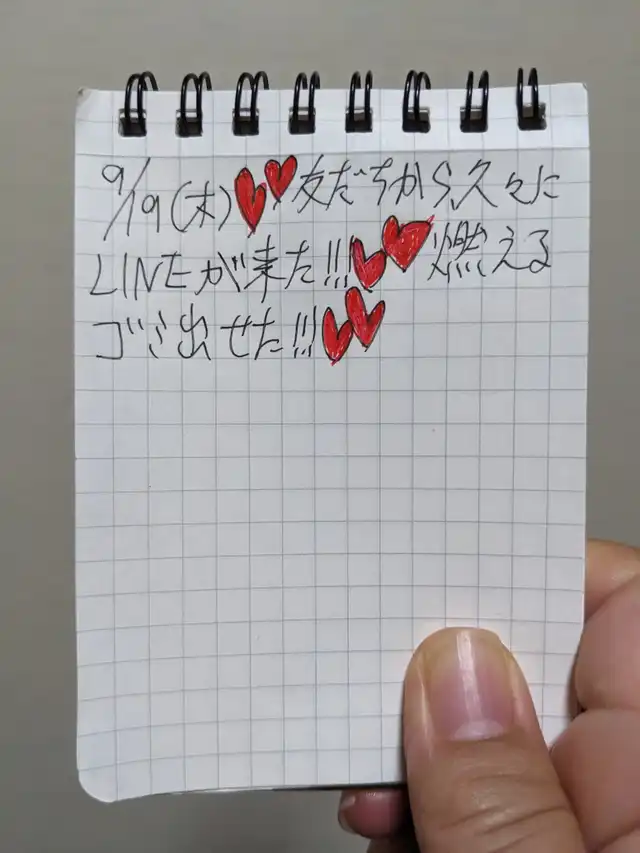 9/19(木)♥♥友だちから、久々に
LINEが来た!!!♥♥燃える
ゴミ出せた!!!♥♥